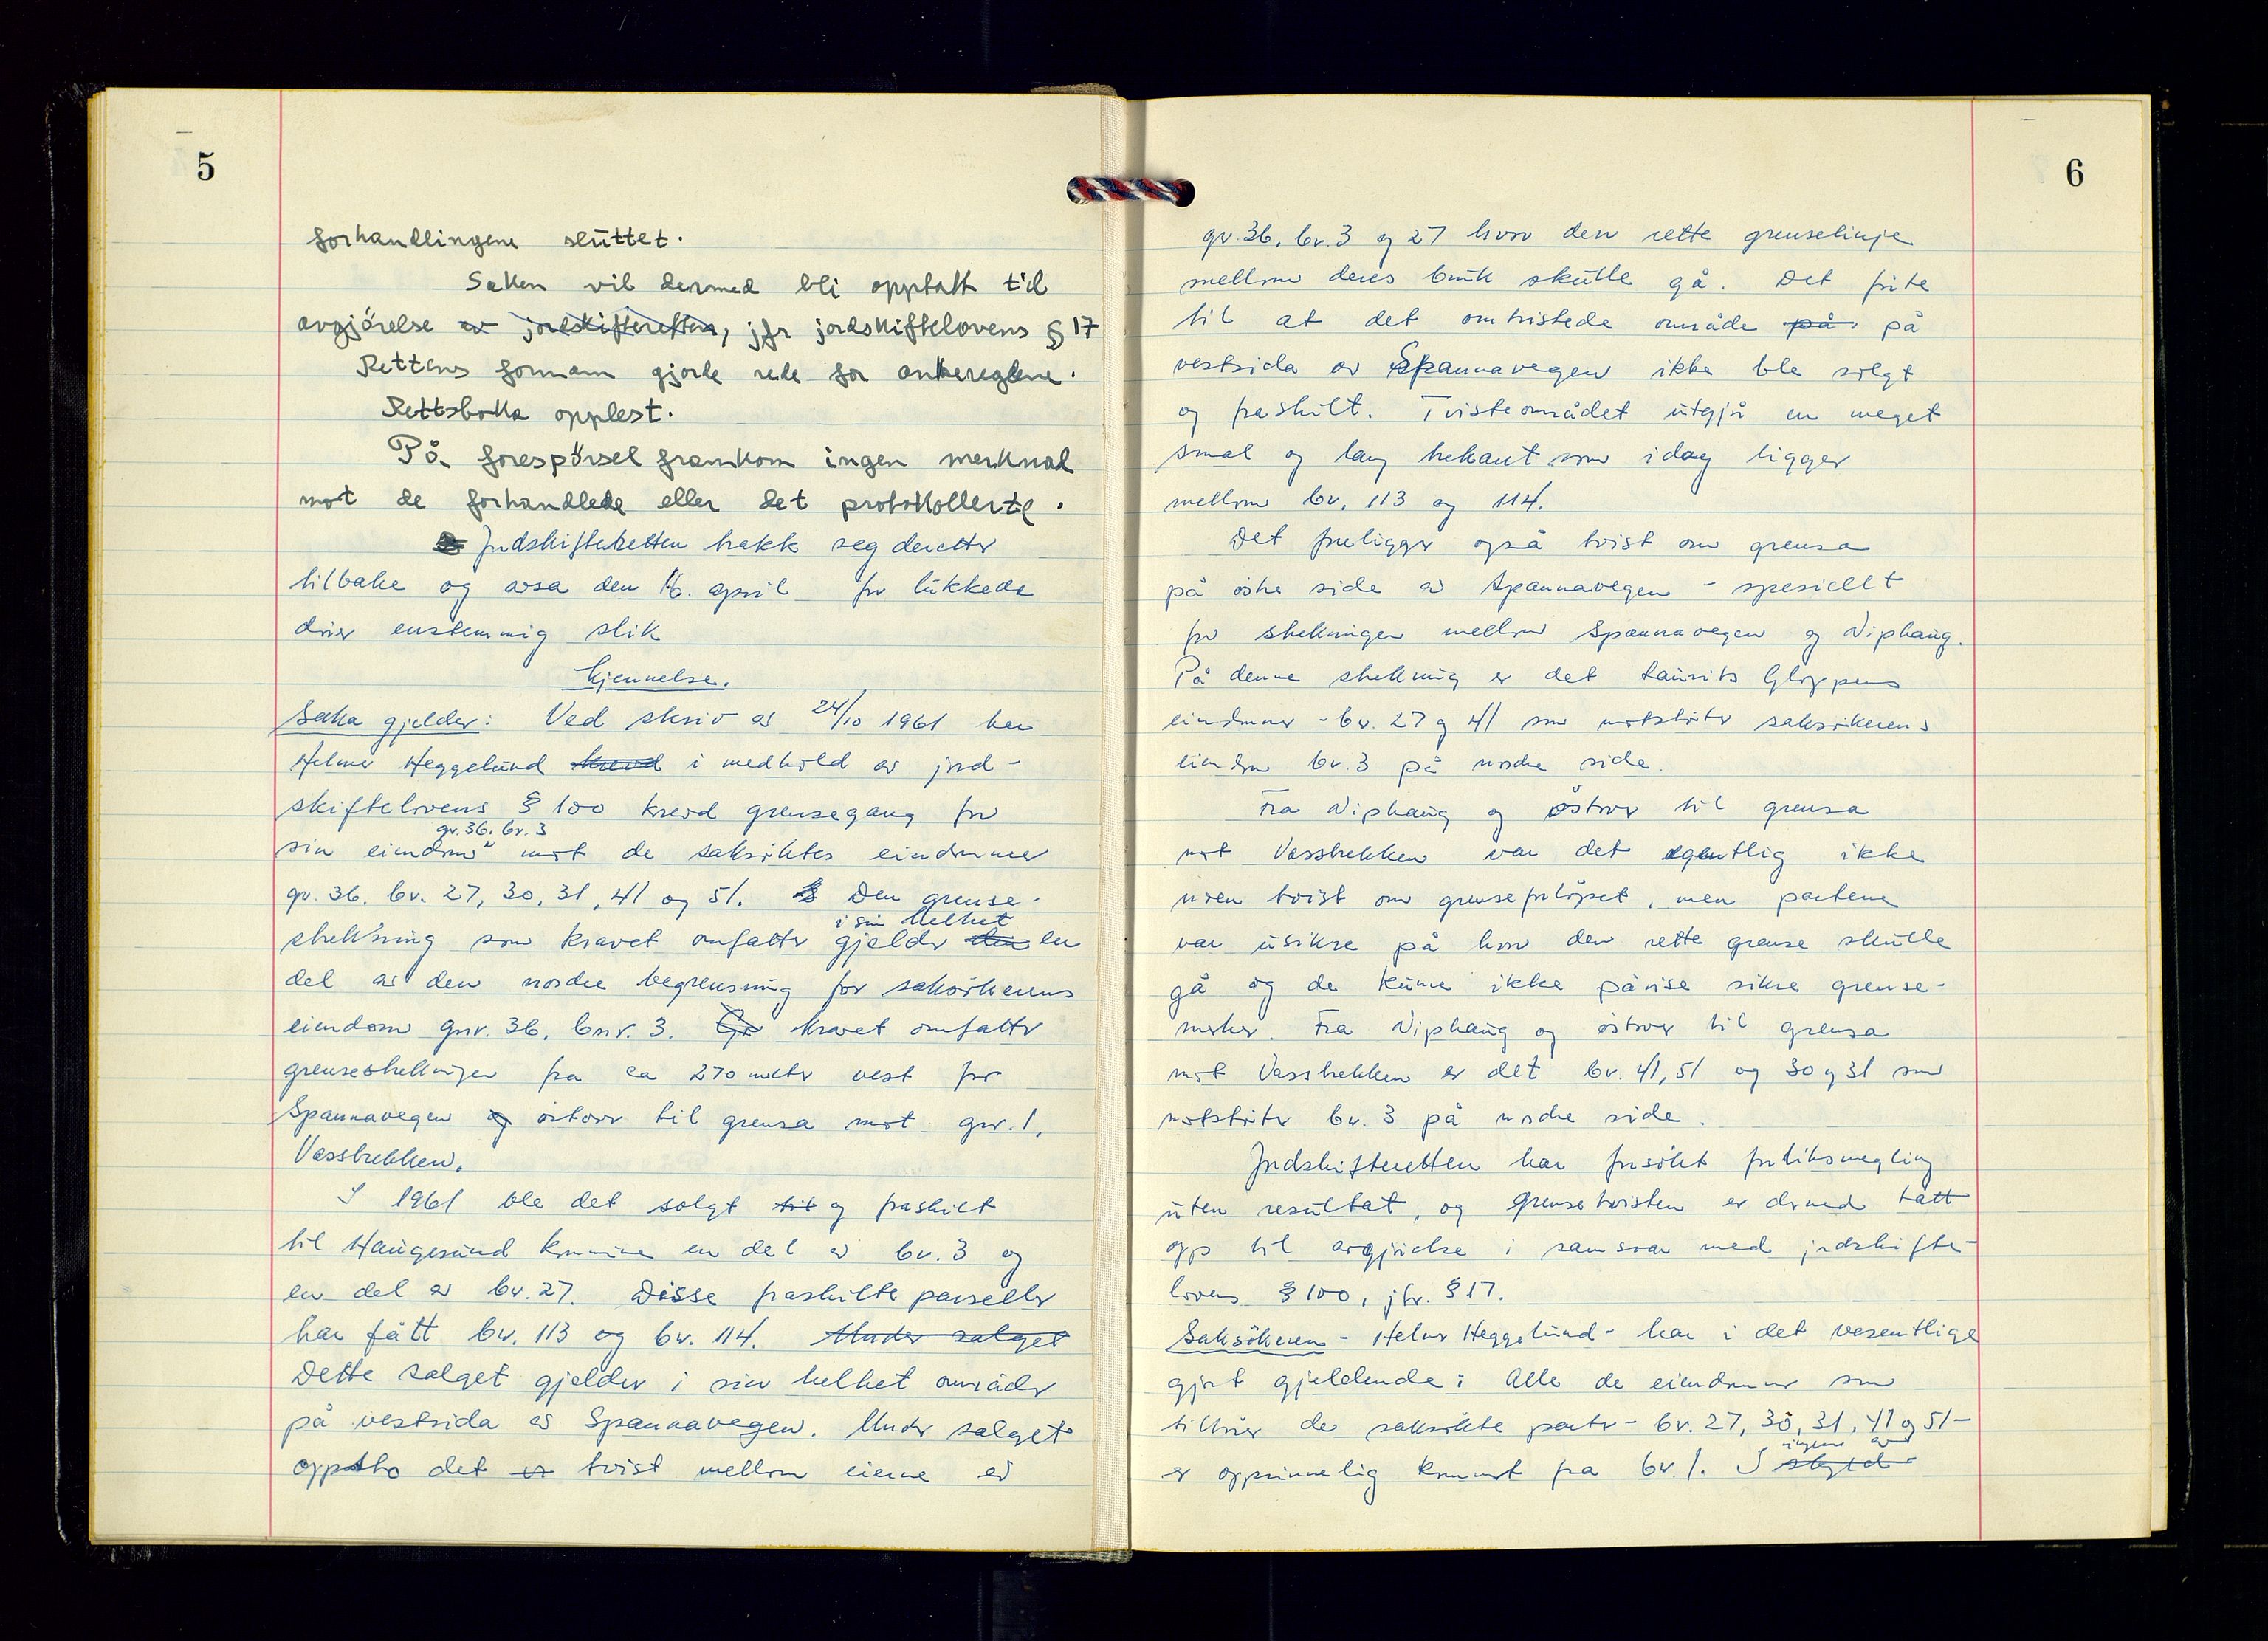 5
forhandlingene sluttet.
Saken vil dermed bli opptatt til
avgjörelse av jordskifteretten, jfr jordskiftelovens § 17
Rettens formann gjorde rede for ankereglene.
Rettsboka opplest.
På forespörsel framkom ingen merknad
mot de forhandlede eller det protokollerte.
Jordskifteretten trakk seg deretter
tilbake og avsa den 16. april for lukkede
dörer enstemmig slik
Kjennelse.
Saka gjelder: Ved skriv av 24/10 1961 har
Helmer Heggelund krevd i medhold av jord-
skiftelovens § 100 krevd grensegang for
gr. 36. br. 3
sin eiendom mot de saksöktes eiendommer
gr. 36. br. 27, 30, 31, 41 og 51. Den grense-
i sin helhet
strekning som kravet omfatter gjelder den en
del av den nordre begrensning for saksökerens
eiendom gnr. 36, bnr. 3. Gr kravet omfatter
grensestrekningen fra ca 270 meter vest for
Spannavegen og östover til grensa mot gnr. 1,
Vassbrekken.
I 1961 ble det solgt til og fraskilt
til Haugesund kommune en del av br. 3 og
en del av br. 27. Disse fraskilte parseller
har fått br. 113 og br. 114. Under salget
Dette salget gjelder i sin helhet områder
på vestsida av Spannavegen. Under salget
oppsto det en tvist mellom eierne av
6
gr. 36, br. 3 og 27 hvor den rette grenselinje
mellom deres bruk skulle gå. Det förte
til at det omtvistede område på på
vestsida av Spannavegen ikke ble solgt
og fraskilt. Tvisteområdet utgjör en meget
smal og lang trekant som idag ligger
mellom br. 113 og 114.
Det foreligger også tvist om grensa
på östre side av Spannavegen - spesiellt
for strekningen mellom Spannavegen og Viphaug.
På denne strekning er det Laurits Gloppens
eiendommer - br. 27 og 41 som motstöter saksökerens
eiendom br. 3 på nordre side.
Fra Viphaug og östover til grensa
mot Vassbrekken var det egentlig ikke
noen tvist om grenseforlöpet, men partene
var usikre på hvor den rette grense skulle
gå og de kunne ikke påvise sikre grense-
merker. Fra Viphaug og östover til grensa
mot Vassbrekken er det br. 41, 51 og 30 og 31 som
motstöter br. 3 på nordre side.
Jordskifteretten har forsökt forliksmegling
uten resultat, og grensetvisten er dermed tatt
opp til avgjörelse i samsvar med jordskifte-
lovens § 100, jfr. § 17.
Saksökeren - Helmer Heggelund - har i det vesentlige
gjort gjeldende: Alle de eiendommer som
tilhörer de saksökte parter - br. 27, 30, 31, 41 og 51 -
ingen av
er opprinnelig kommet fra br. 1. I skyld-